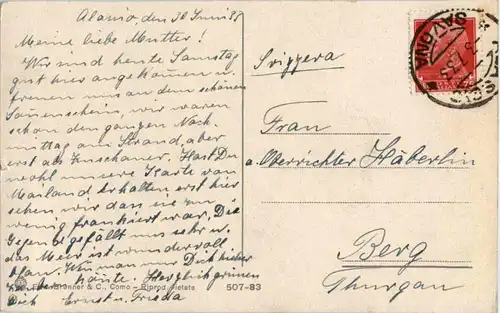 Alassio, den 30 Juni 35
Meine liebe Mutter!
Wir sind heute Samstag
gut hier angekommen u.
freuen uns an dem schönen
Sonnenschein, wir waren
schon den ganzen Nach
mittag am Strand, aber
erst als Zuschauer. Hast Du
wohl unsere Karte von
Mailand erhalten erst hier
sehen, wir dass sie zu
wenig frankiert war. Die
Gegend gefällt uns sehr u.
das Meer ist wundervoll
blau. Wenn man nur Dich hieher
könnte. Herzlich grüssen
Dich Ernst u. Frieda
Brunner & C., Como - Riprod. vietata 507-83
Svizzera
SAVONA
Frau
a. Oberrichter Häberlin
Berg
Thurgau